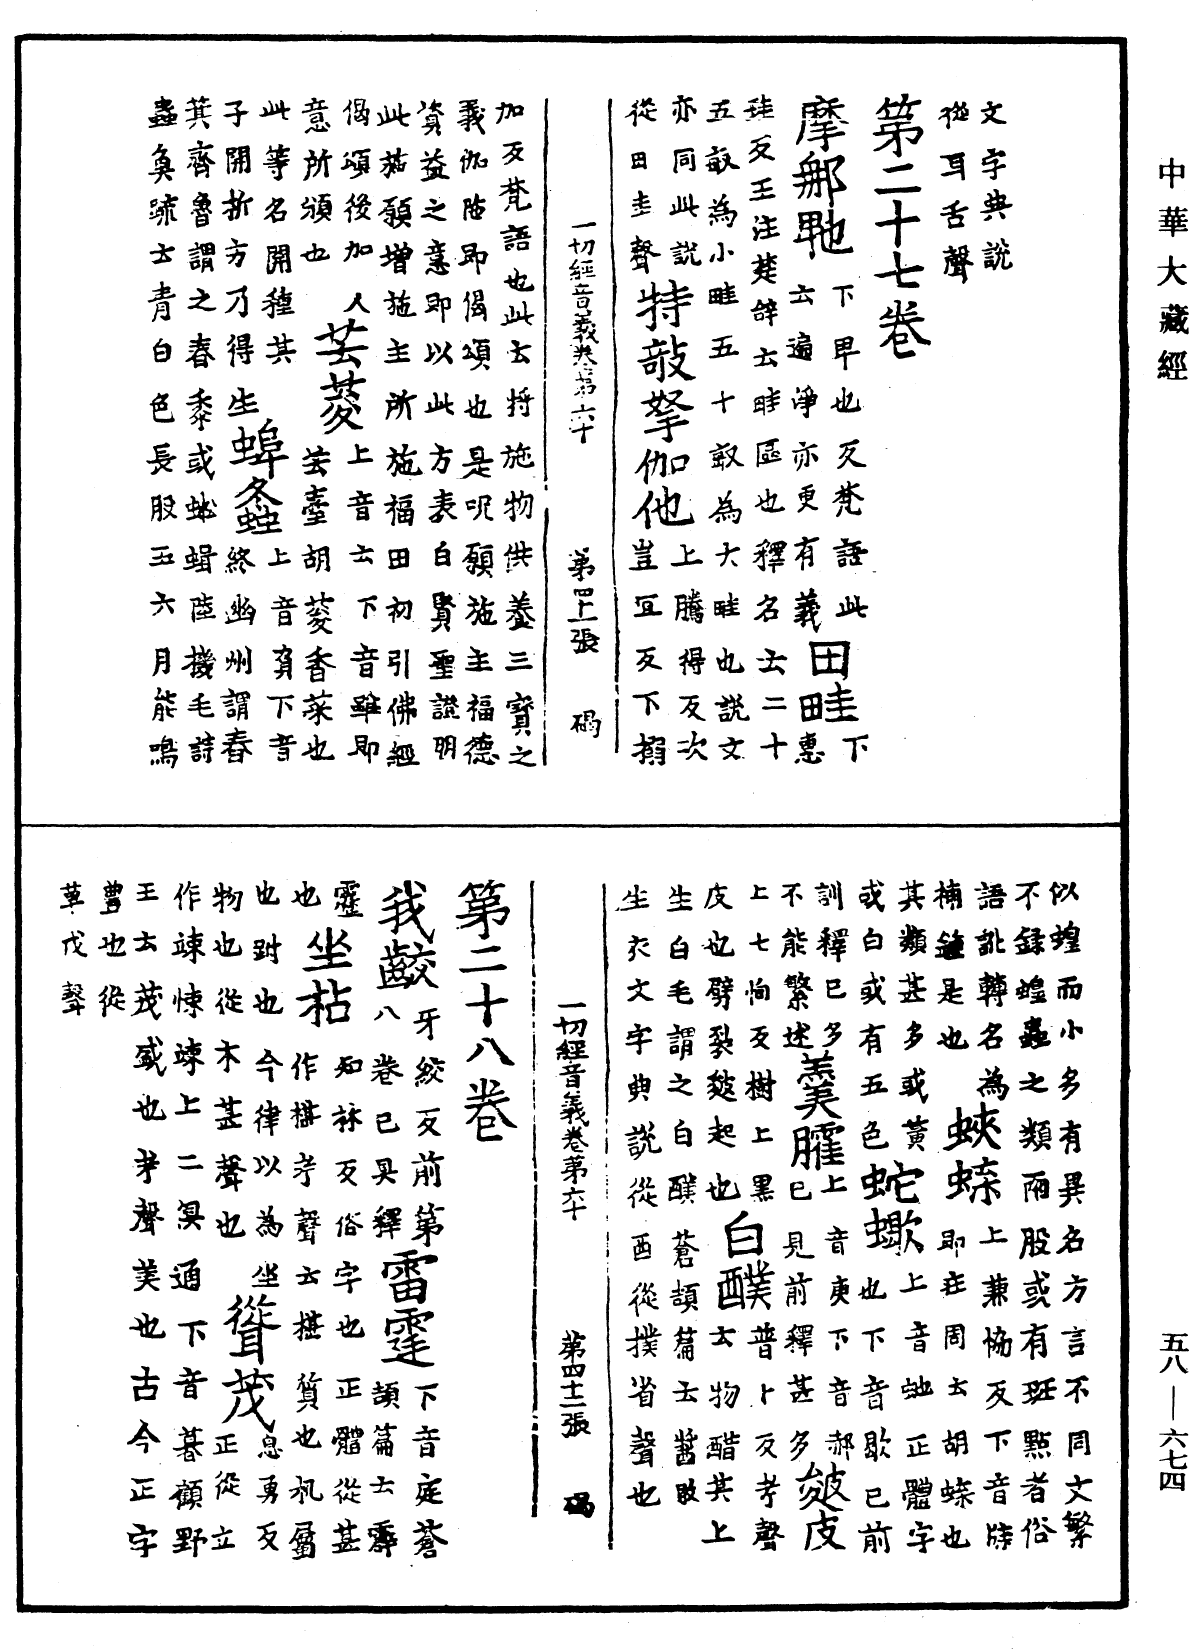 中華大藏經
文字典說
從耳舌聲
第二十七卷
摩那馳 下卑也反梵語此
云遍淨亦更有義 田畦 下惠
珪反王注楚辭云畦區也釋名云二十
五畝為小畦五十畝為大畦也說文
亦同此說 特敲拏伽他 上騰得反次
從田圭聲 豈冝反下搦
一切經音義卷第六十 第四十一張 碣
加反梵語也此云將施物供養三寶之
義伽陁即偈頌也是呪願施主福德
資益之意即以此方表白賢聖證明
此葢願增施主所施福田初引佛經
偈頌後加人 芸荾 上音云下音雖即
意所頒也 芸臺胡荾香菜也
此等名開種其 上音負下音
子開折方乃得生 蜉螽 終幽州謂春
箕齊魯謂之春黍或蚣蝑陸機毛詩
蟲魚疏云青白色長股五六月能鳴
似蝗而小多有異名方言不同文繁
不錄蝗蟲之類兩股或有班點者俗
語訛轉名為 蛺蝶 上兼協反下音牒
楠鍾是也 即莊周云胡蝶也
其類甚多或黃 蛇蠍 上音虵正體字
或白或有五色 也下音歇已前
訓釋已多 羹臛 上音庚下音郝
不能繁述 已見前釋甚多 皴皮
上七恂反樹上黑 普卜反考聲
皮也劈裂皴起也 白醭 云物醋其上
生白毛謂之白醭蒼頡篇云醬敗
生衣文字典說從酉從撲省聲也
一切經音義卷第六十 第四十二張 碣
第二十八卷
我齩 牙絞反前第
八卷已具釋 雷霆 下音庭蒼
頡篇云霹
靂 坐枯 知林反俗字也正體從甚
也 作椹考聲云椹質也机屬
也對也今律以為坐 息勇反
物也從木甚聲也 聳茂 正從立
作竦悚竦上二㝠通下音暮顧野
王云茂盛也考聲美也古今正字
豊也從
草戊聲
五八—六七四